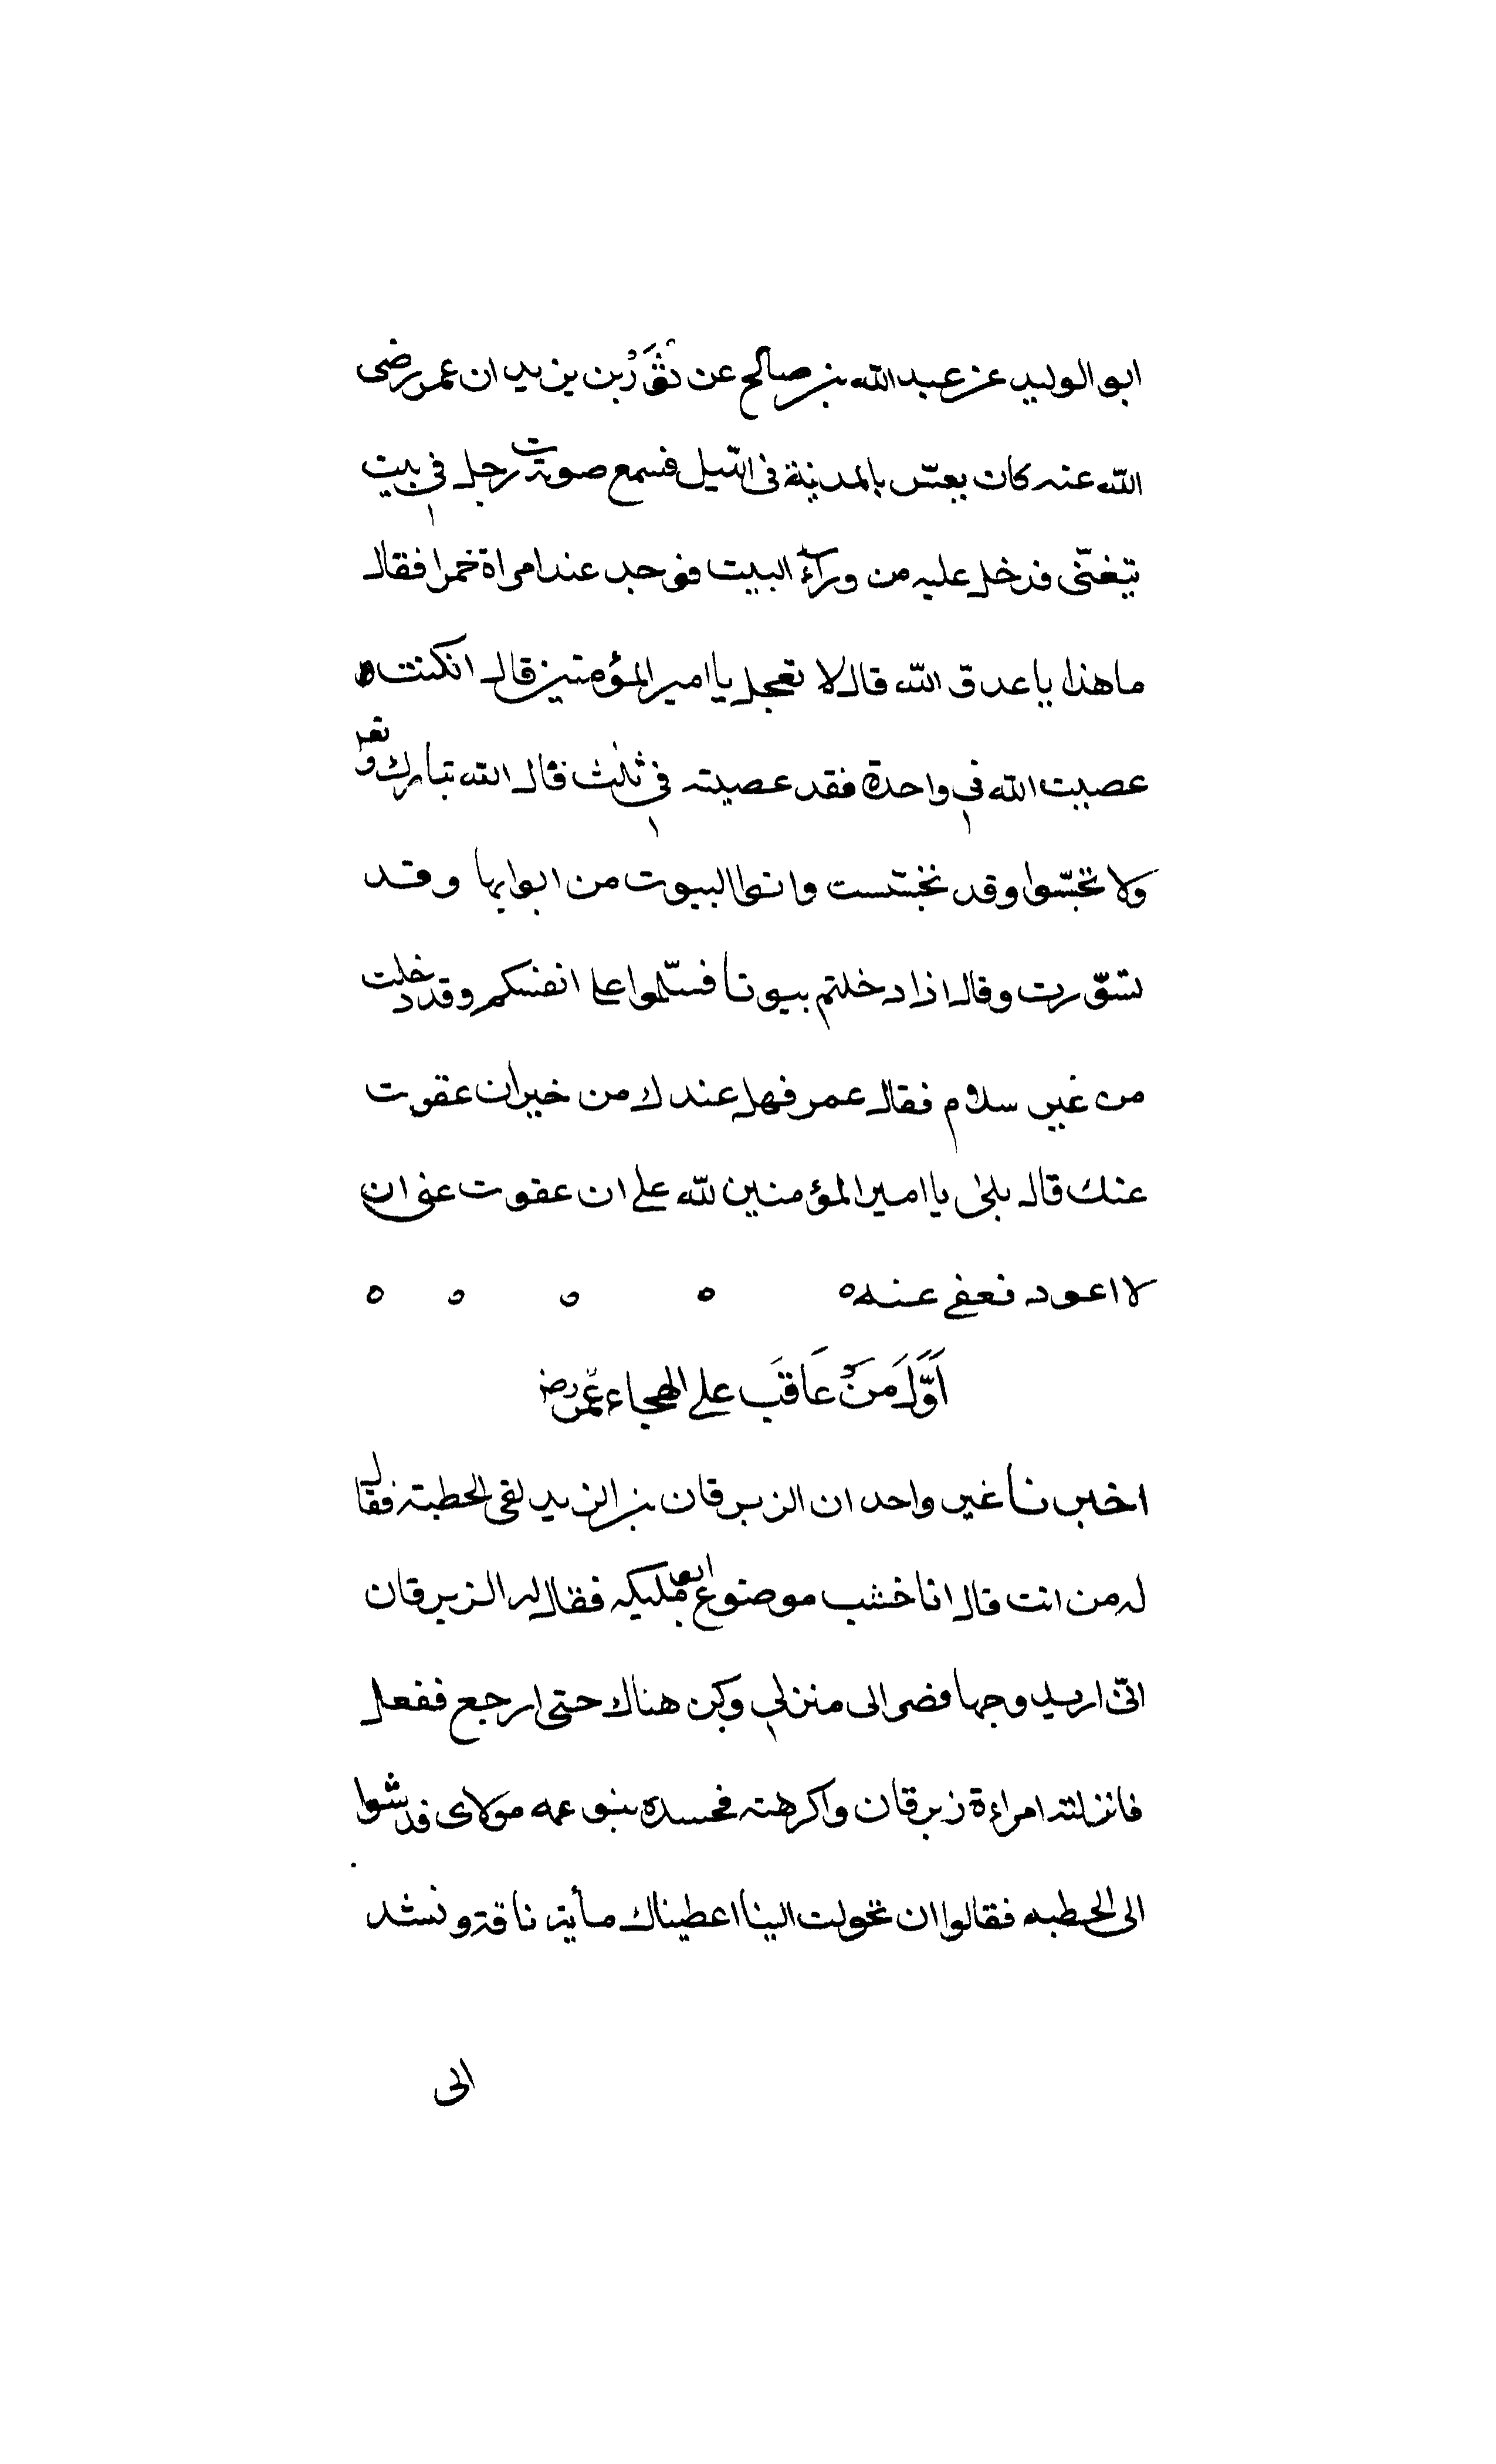 ابو الوليد عن عبد الله بن صالح عن ثَوْر بن يزيد ان عمر رضى
الله عنه كان يعسّ بالمدينة فى اللّيل فسمع صوت رجل فى بيت
يتغنّى فدخل عليه من ورآء البيت فوجد عند امراة خمرا فقال
ما هذا يا عدو الله قال لا تعجل يا امير المؤمنين قال ان كنت
عصيت الله فى واحدة فقد عصيته فى ثلث قال الله تبارك وتعـ
ولا تجسّسوا وقد تجسّست واتوا البيوت من ابوابها وقد
تسوّرت وقال اذا دخلتم بيوتا فسلّموا على انفسكم وقد دخلت
من غير سلام فقال عمر فهل عندك من خير ان عفوت
عنك قال بلى يا امير المؤمنين لله على ان عفوت عنى ان
لا اعود فعفى عنه ٥ ٥ ٥ ٥ ٥
اَوَّلَ مَنْ عَاقَبَ على الهجاء عمر رضـ
اخبرنا غير واحد ان الزبرقان بن الزيد لقى الحطبة فقال
له من انت قال انا خشب موضوع ابو مليكه فقال له الزبرقان
انّى اريد وجها فصر الى منزلى وكن هناك حتى ارجع ففعل
فانزلته امراءة زبرقان واكرهته فحسده بنو عمه مولاى فدشوا
الى الحطبه فقالوا ان تحولت الينا اعطيناك مأية ناقة ونشد
الى